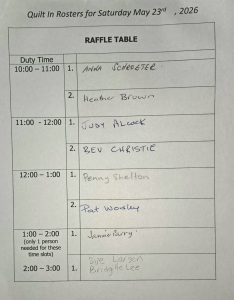 Quilt In Rosters for Saturday May 23rd , 2026
RAFFLE TABLE
Duty Time
10:00 – 11:00 1. ANNA SCHROETER
2. Heather Brown
11:00 - 12:00 1. JUDY ALCOCK
2. BEV CHRISTIE
12:00 – 1:00 1. Penny Shelton
2. Pat Worsley
1:00 – 2:00 1. Jennie Parry
(only 1 person
needed for these
time slots) Sue Larsen
2:00 – 3:00 1. Bridgite Lee